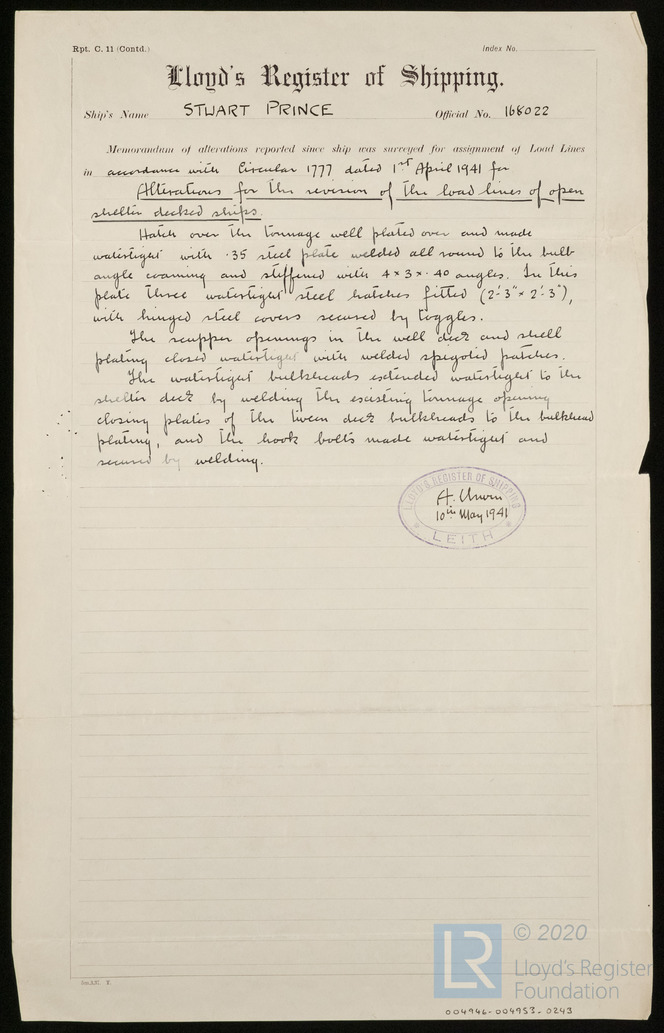 Rpt. C. 11 (Contd.)
Index No.
Lloyd's Register of Shipping.
Ship's Name STUART PRINCE Official No. 168022
Memorandum of alterations reported since ship was surveyed for assignment of Load Lines
in accordance with Circular 1777 dated 1st April 1941 for
Alterations for the revision of the load lines of open
shelter decked ships.
Hatch over the tonnage well plated over and made
watertight with .35 steel plate welded all round to the bulb
angle coaming and stiffened with 4 × 3 × .40 angles. In this
plate three watertight steel hatches fitted (2'-3" × 2'-3"),
with hinged steel covers secured by toggles.
The scupper openings in the well deck and shell
plating closed watertight with welded spigoted patches.
The watertight bulkheads extended watertight to the
shelter deck by welding the existing tonnage opening
closing plates of the tween deck bulkheads to the bulkhead
plating, and the hook bolts made watertight and
secured by welding.
LLOYD'S REGISTER OF SHIPPING
A. Unwin
10th May 1941
LEITH
© 2020
LR
Lloyd's Register
Foundation
004946-004953-0243